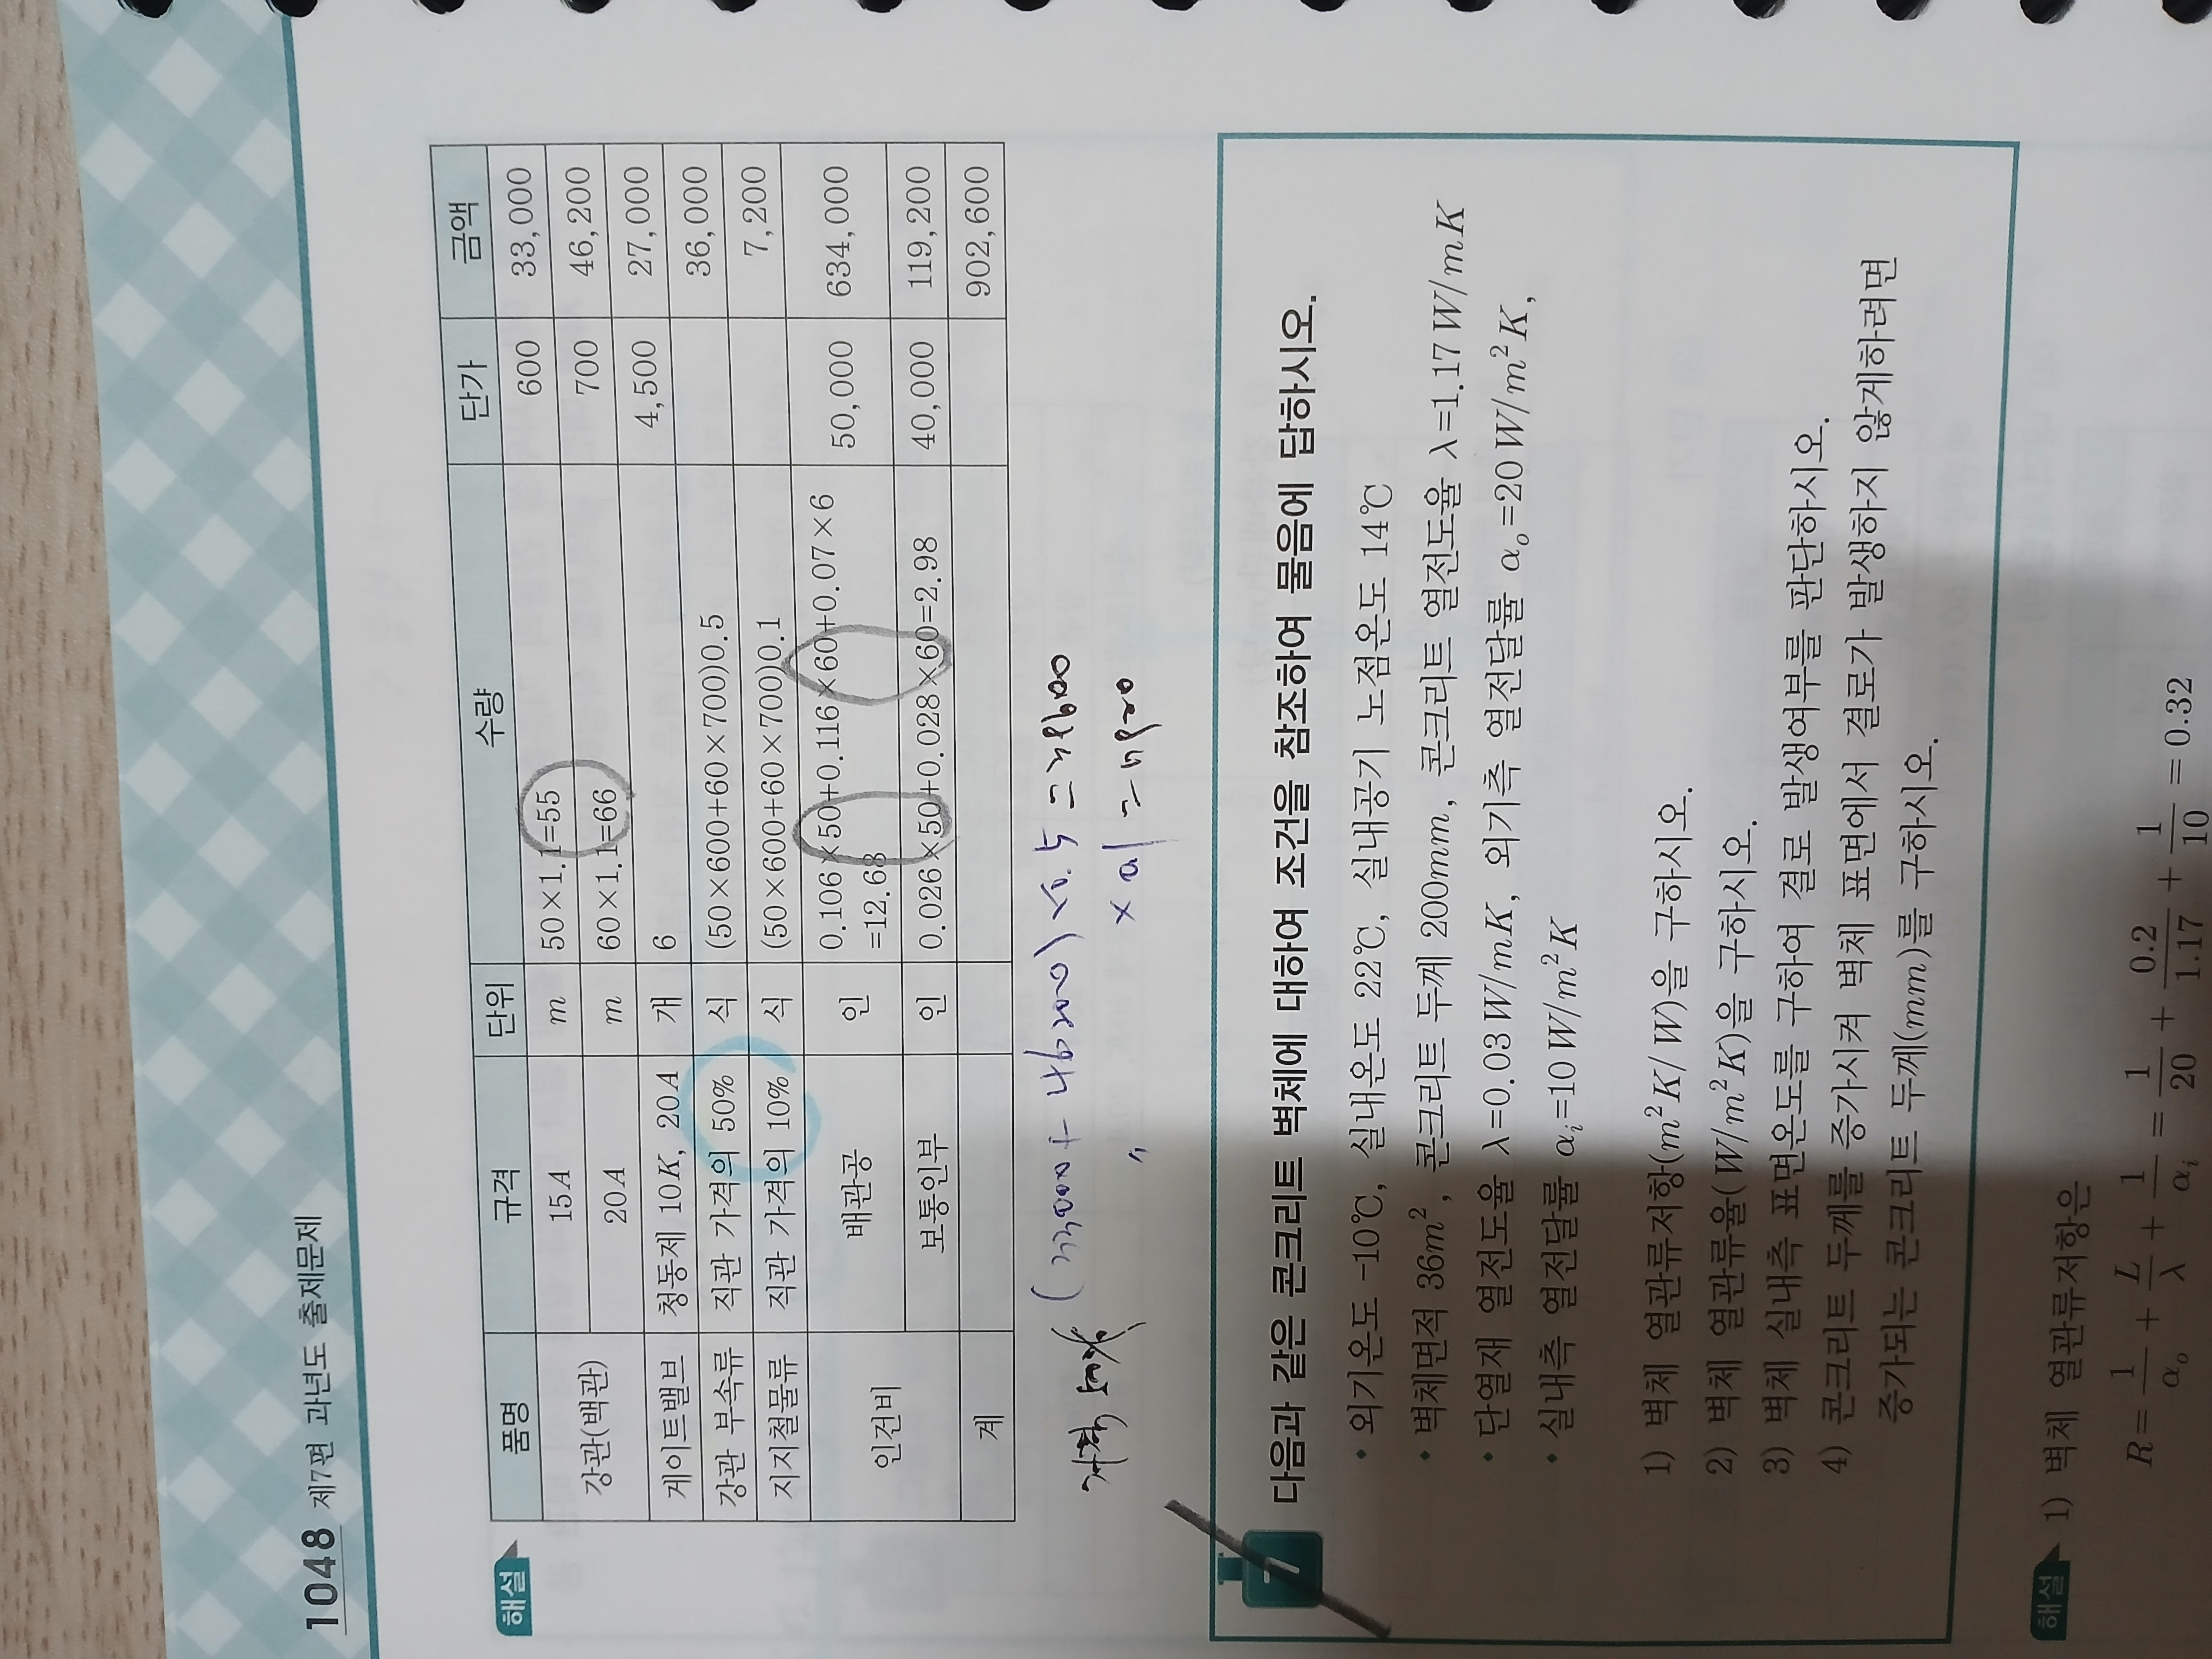 1048 제7편 과년도 출제문제
해설
품명 규격 단위 수량 단가 금액
강관(백관) 15A m 50×1.1=55 600 33,000
20A m 60×1.1=66 700 46,200
게이트밸브 청동제 10K, 20A 개 6 4,500 27,000
강관 부속류 직관 가격의 50% 식 (50×600+60×700)0.5 36,000
지지철물류 직관 가격의 10% 식 (50×600+60×700)0.1 7,200
인건비 배관공 인 0.106×50+0.116×60+0.07×6 50,000 634,000
=12.68
보통인부 인 0.026×50+0.028×60=2.98 40,000 119,200
계 902,600
(33000+46200)×0.5=39600
〃 ×0.1=7920
7 다음과 같은 콘크리트 벽체에 대하여 조건을 참조하여 물음에 답하시오.
• 외기온도 -10℃, 실내온도 22℃, 실내공기 노점온도 14℃
• 벽체면적 36m², 콘크리트 두께 200mm, 콘크리트 열전도율 λ=1.17W/mK
• 단열재 열전도율 λ=0.03W/mK, 외기측 열전달률 αo=20W/m²K,
• 실내측 열전달률 αi=10W/m²K
1) 벽체 열관류저항(m²K/W)을 구하시오.
2) 벽체 열관류율(W/m²K)을 구하시오.
3) 벽체 실내측 표면온도를 구하여 결로 발생여부를 판단하시오.
4) 콘크리트 두께를 증가시켜 벽체 표면에서 결로가 발생하지 않게하려면
증가되는 콘크리트 두께(mm)를 구하시오.
해설 1) 벽체 열관류저항은
R=1/αo+L/λ+1/αi=1/20+0.2/1.17+1/10=0.32